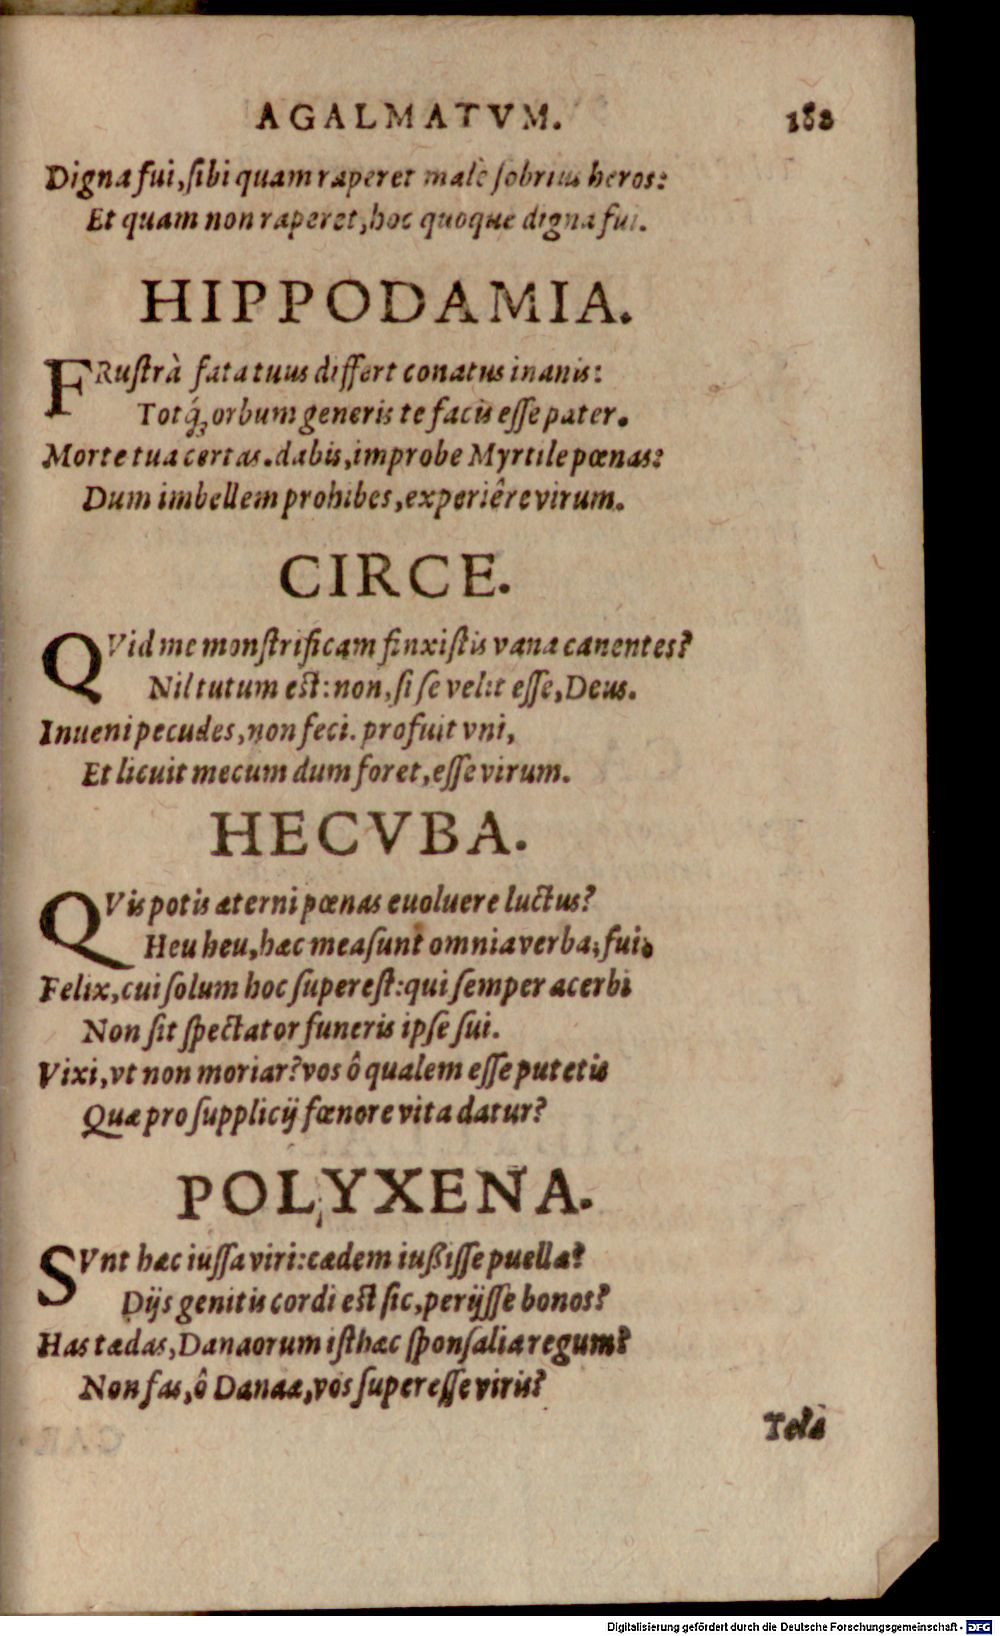 AGALMATVM. 182
Digna fui, ſibi quam raperet malè ſobrius heros:
Et quam non raperet, hoc quoque digna fui.
HIPPODAMIA.
FRuſtrà fata tuus differt conatus inanis:
Totq́ꝫ orbum generis te facis eſſe pater.
Morte tua certas. dabis, improbe Myrtile pœnas:
Dum imbellem prohibes, experiêre virum.
CIRCE.
QVid me monſtrificam finxiſtis vana canentes?
Nil tutum eſt: non, ſi ſe velit eſſe, Deus.
Inueni pecudes, non feci. profuit vni,
Et licuit mecum dum foret, eſſe virum.
HECVBA.
QVis potis æterni pœnas euoluere luctus?
Heu heu, hæc mea ſunt omnia verba, fui.
Felix, cui ſolum hoc ſupereſt: qui ſemper acerbi
Non ſit ſpectator funeris ipſe ſui.
Vixi, vt non moriar? vos ô qualem eſſe putetis
Quæ pro ſupplicij fœnore vita datur?
POLYXENA.
SVnt hæc iuſſa viri: cædem iußiſſe puellæ?
Dijs genitis cordi eſt ſic, perijſſe bonos?
Has tædas, Danaorum iſthæc ſponſalia regum?
Non fas, ô Danaæ, vos ſupereſſe viris?
Digitalisierung gefördert durch die Deutsche Forschungsgemeinschaft - DFG